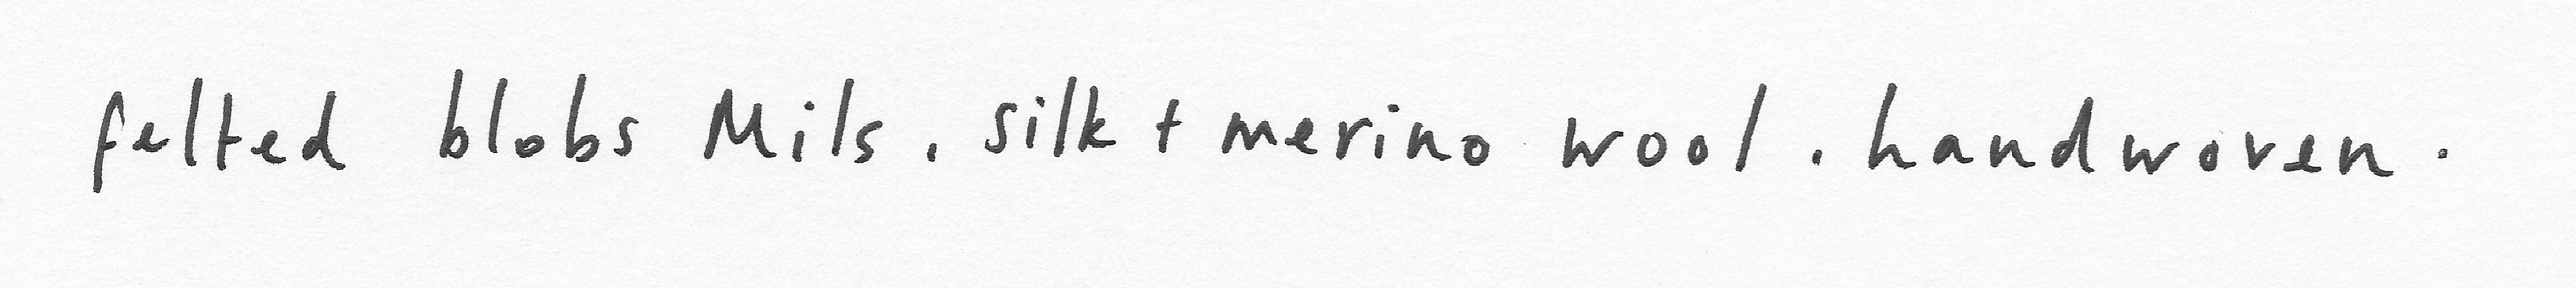 felted blobs Mils. silk + merino wool. handwoven.